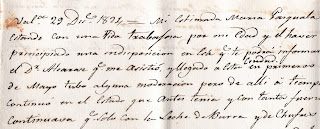 Dic.e 29 1824 — Mi Estimada Maria Pasquala
Estando con una Vida trabajosa por mi Edad y el haver
principiado una indisposicion en Lok.e q.e te podrá informar
el D.r Alvarez q.e me asistió, y llegado a esta Ciudad en primeros
de Mayo tube alguna moderacion pero de alli a tiempo
continuó en el estado que antes tenia y con tanta fuerza
continuava q.e solo con la Leche de Burra y de Chufas